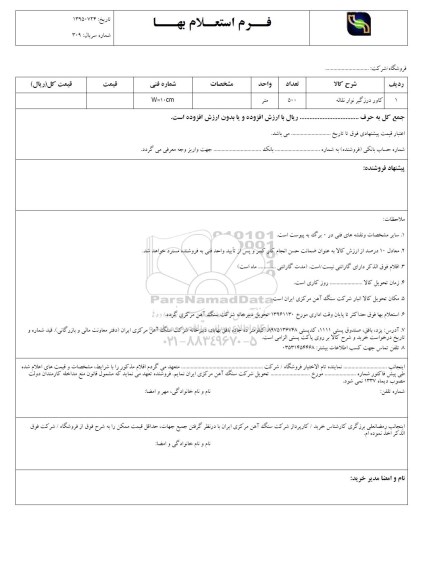 فرم استعلام بها
تاریخ: ۱۳۹۵۰۷۲۴
شماره سریال: ۳۰۹
فروشگاه/شرکت:
ردیف شرح کالا تعداد واحد مشخصات شماره فنی قیمت قیمت کل(ریال)
۱ کاور درزگیر نوار نقاله ۵۰۰ متر W=۱۰cm
جمع کل به حرف ............ ریال با ارزش افزوده و یا بدون ارزش افزوده است.
اعتبار قیمت پیشنهادی فوق تا تاریخ ............ می باشد.
شماره حساب بانکی (فروشنده) به شماره ............ بانک ............ جهت واریز وجه معرفی می گردد.
پیشنهاد فروشنده:
ملاحظات:
۱. سایر مشخصات ونقشه های فنی در ۰ برگ به پیوست است.
۲. معادل ۱۰ درصد از ارزش کالا به عنوان ضمانت حسن انجام کار کسر و پس از تایید واحد فنی به فروشنده مسترد خواهد شد.
۳. اقلام فوق الذکر دارای گارانتی نیست/است. (مدت گارانتی ...... ماه است)
۴. زمان تحویل کالا ............ روز کاری است.
۵. مکان تحویل کالا انبار شرکت سنگ آهن مرکزی ایران است.
۶. استعلام بها فوق حداکثر تا پایان وقت اداری مورخ ۱۳۹۶۲۱۳۰ تحویل دبیرخانه شرکت سنگ آهن مرکزی گردد.
۷. آدرس: یزد، بافق، صندوق پستی ۱۱۱۱، کدپستی ۸۹۷۵۱۳۴۷۴۸ دبیرخانه شرکت سنگ آهن مرکزی ایران (دفتر معاونت مالی و بازرگانی). قید شماره و
تاریخ درخواست خرید و شرح کالا بر روی پاکت پستی الزامی است.
۸. تلفن تماس جهت کسب اطلاعات بیشتر:
ParsNamadData
۰۲۱-۸۸۳۴۹۶۷۰-۵
اینجانب ............ نماینده تام الاختیار فروشگاه / شرکت ............ متعهد می گردم اقلام مذکور را با شرایط، مشخصات و قیمت های اعلام شده
طی پیش فاکتور شماره ............ مورخ ............ تحویل شرکت سنگ آهن مرکزی ایران نمایم. فروشنده تعهد می نماید که مشمول قانون منع مداخله کارمندان دولت
مصوب دیماه ۱۳۳۷ نمی شود.
شماره تلفن: نام و نام خانوادگی، مهر و امضا:
اینجانب رمضانعلی برزگری کارشناس خرید / کارپرداز شرکت سنگ آهن مرکزی ایران با درنظر گرفتن جمیع جهات، حداقل قیمت ممکن را به شرح فوق از فروشگاه / شرکت فوق
الذکر اخذ نموده ام.
نام و نام خانوادگی و امضا:
نام و امضا مدیر خرید: